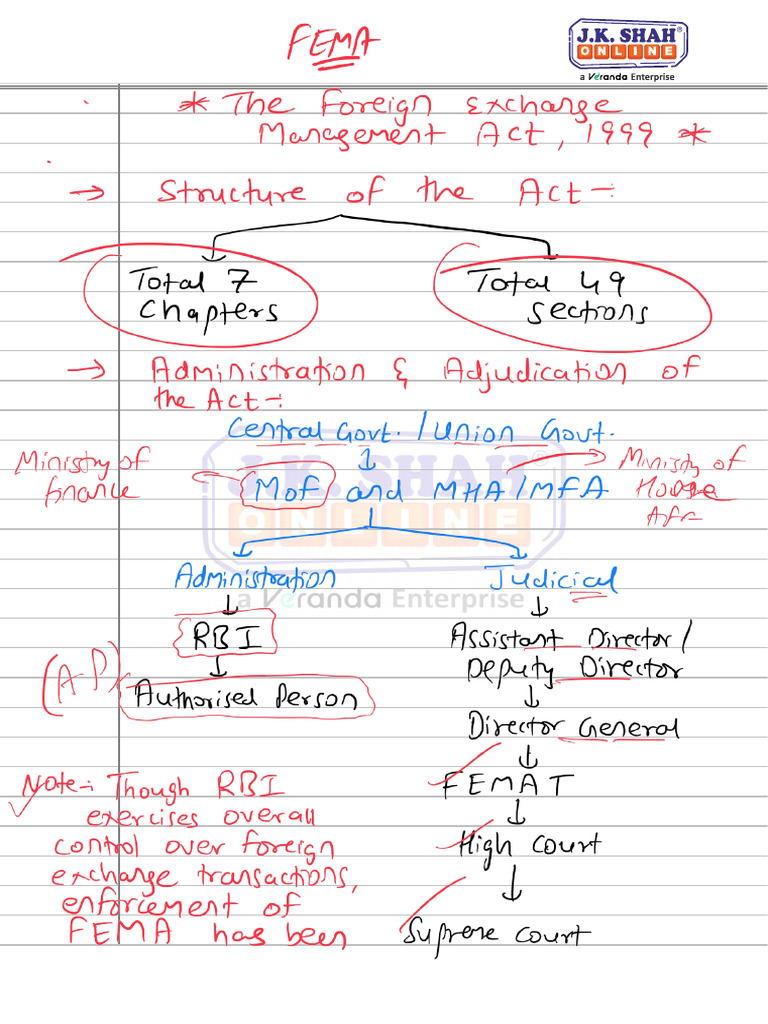 FEMA
J.K. SHAH®
ONLINE
a Veranda Enterprise
* The Foreign Exchange
Management Act, 1999 *
→ Structure of the Act :-
Total 7
Chapters
Total 49
Sections
→ Administration & Adjudication of
the Act :-
Central Govt. / Union Govt.
Ministry of
finance
MoF and MHA/MFA
Ministry of
Home
Afr
J.K. SHAH®
ONLINE
a Veranda Enterprise
Administration
Judicial
RBI
Assistant Director /
Deputy Director
(A.P)
Authorised Person
Director General
FEMAT
High Court
Supreme Court
Note :- Though RBI
exercises overall
control over foreign
exchange transactions,
enforcement of
FEMA has been